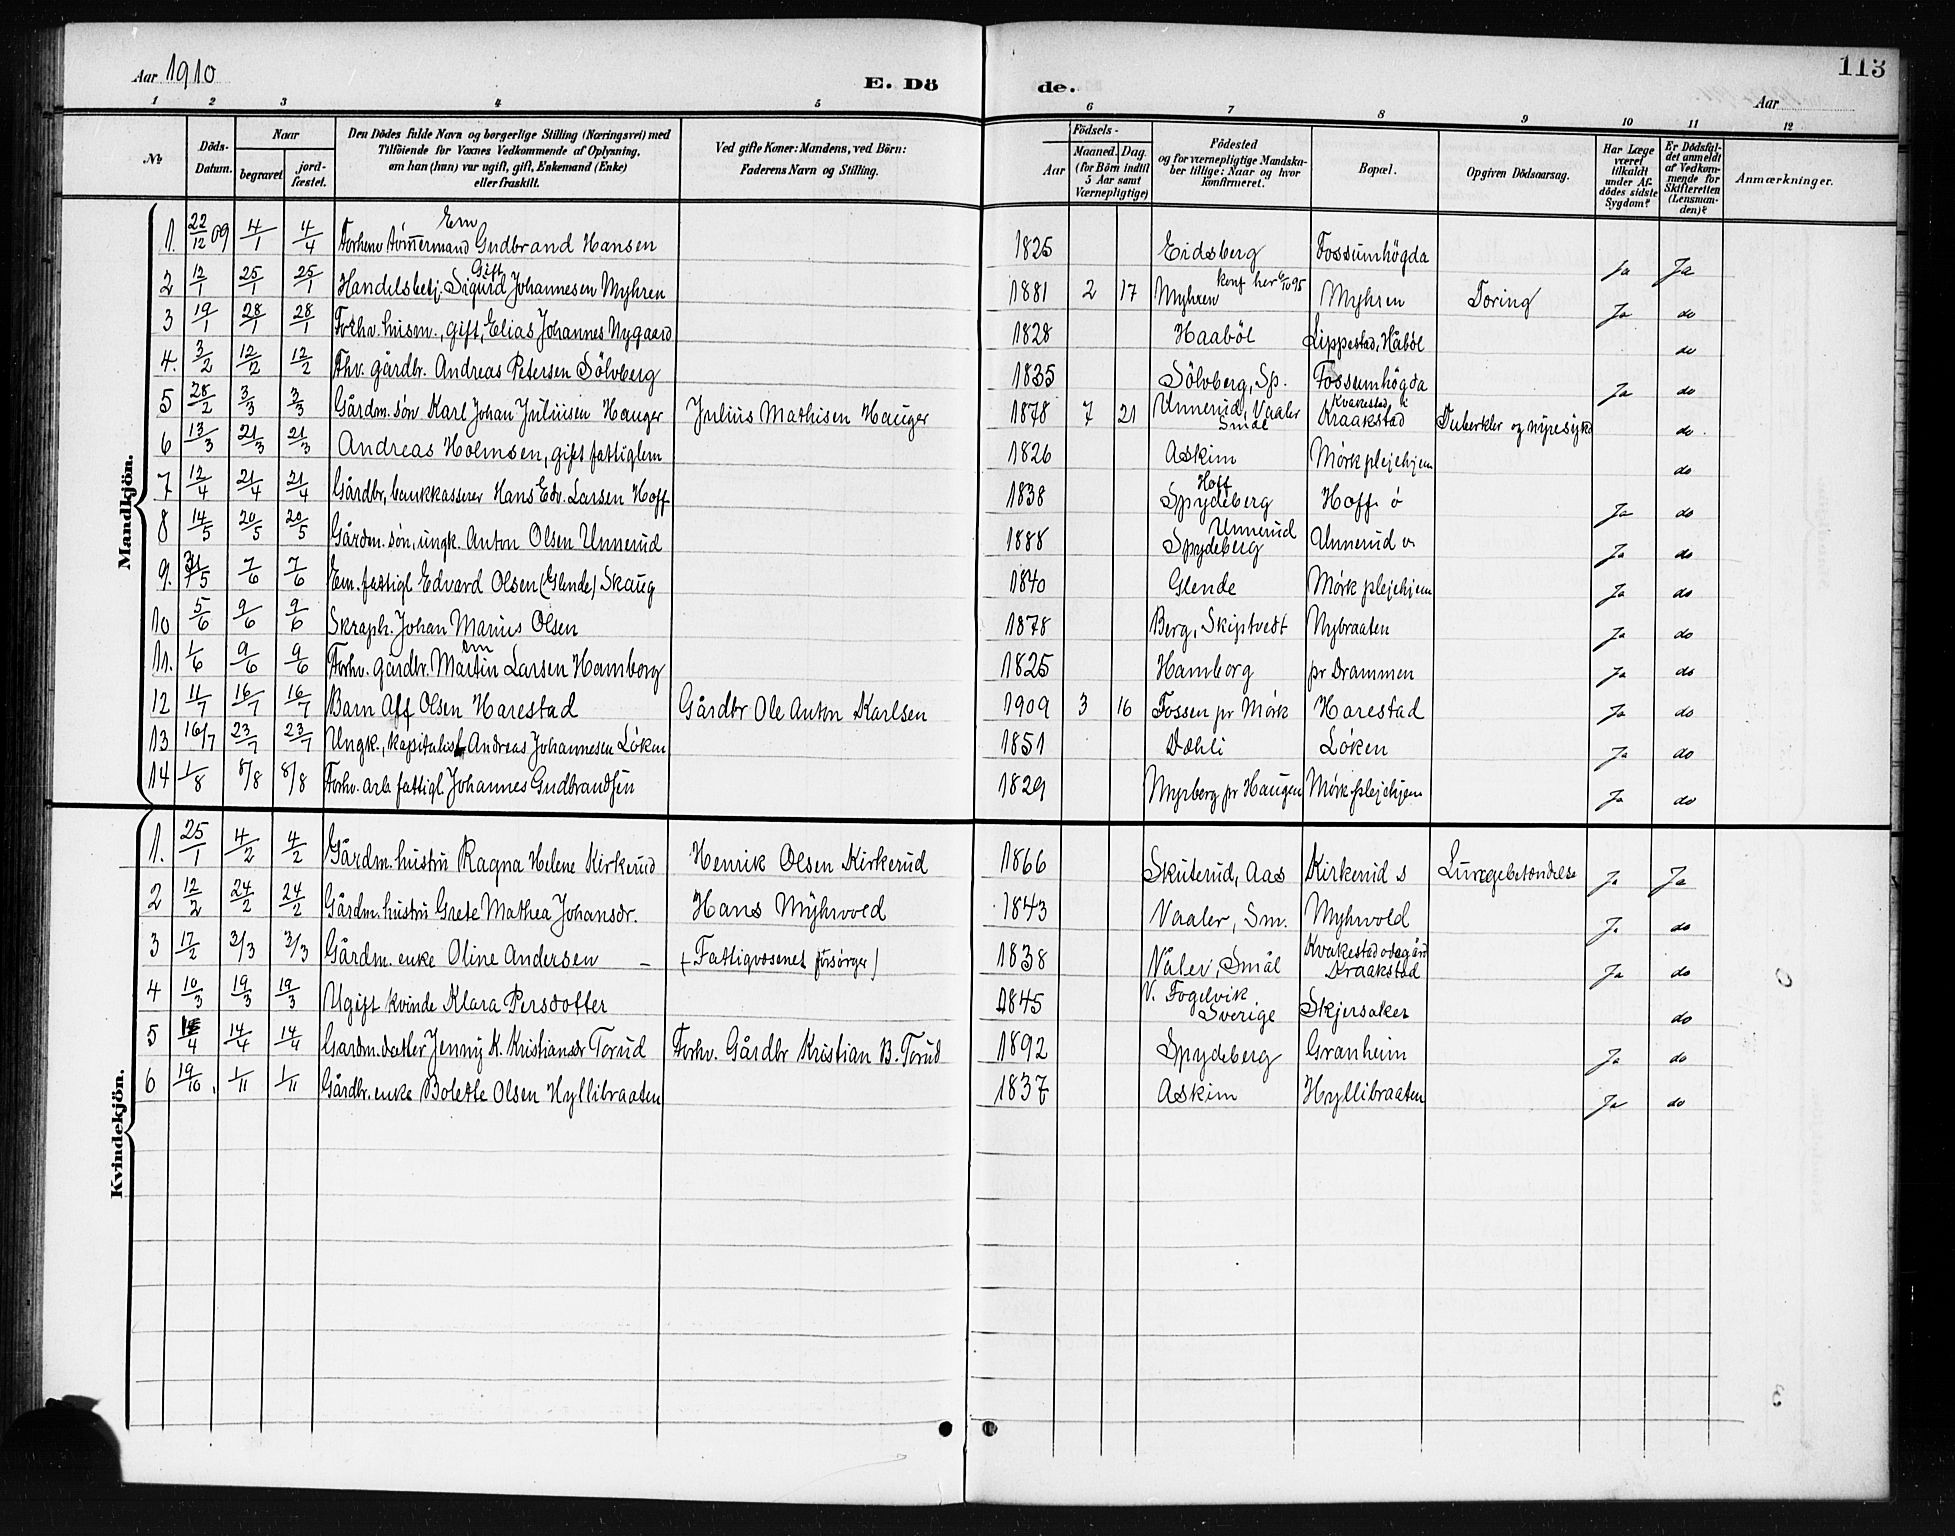 Aar 1910
E. Dö de.
113
Aar
1 2 3 4 5 6 7 8 9 10 11 12
No
Döds-Datum.
Naar
begravet
jord-fæstet.
Den Dödes fulde Navn og borgerlige Stilling (Næringsvei) med
Tilföiende for Voxnes Vedkommende af Oplysning,
om han (hun) var ugift, gift, Enkemand (Enke)
eller fraskilt.
Ved gifte Koner: Mandens, ved Börn:
Faderens Navn og Stilling.
Födsels-
Aar
Maaned. Dag.
(for Börn indtil
5 Aar samt
Værnepligtige)
Födested
og for værnepligtige Mandska-
ber tillige: Naar og hvor
konfirmeret.
Bopæl.
Opgiven Dödsaarsag.
Har Læge
været
tilkaldt
under Af-
dödes sidste
Sygdom?
Er Dödsfal-
det anmeldt
af Vedkom-
mende for
Skifteretten
(Lensman-
den)?
Anmærkninger.
Mandkjön.
1. 22/12 09 4/1 4/4 Forhenv tömmermand Em Gudbrand Hansen 1825 Eidsberg Fossumhögda Ja Ja
2 12/1 25/1 25/1 Handelsbetj. Gift Sigurd Johannesen Myhren 1881 2 17 Myhren konf her 6/10 95 Myhren Tæring Ja do
3 19/1 28/1 28/1 Forhv. husm., gift, Elias Johannes Nygaard 1828 Haaböl Lippestad, Håböl do
4. 3/2 12/2 12/2 Fhv. gårdbr. Andreas Petersen Sölvberg 1835 Sölvberg, Sp. Fossumhögda Ja do
5 28/2 3/3 3/3 Gårdm. sön Karl Johan Juliusen Hauger Julius Mathisen Hauger 1878 7 21 Unnerud, Vaaler Smål Kvakestad i Kraakstad Tuberkler og nyresyke do
6 13/3 21/3 21/3 Andreas Holmsen, gift fattiglem 1826 Askim Mörk plejehjem do
7 12/4 21/4 21/4 Gårdbr, bankkasserer Hans Edv. Larsen Hoff 1838 Hoff Spydeberg Hoff ö Ja do
8 14/5 20/5 20/5 Gårdm. sön, ungk. Anton Olsen Unnerud 1888 Unnerud Spydeberg Unnerud v. Ja do
9. 31/5 7/6 7/6 Em. fattigl Edvard Olsen (Glende) Skaug 1840 Glende Mörk plejehjem Ja do
10 5/6 9/6 9/6 Skraph. Johan Marius Olsen 1878 Berg, Skiptvedt Nybraaten Ja do
11. 1/6 9/6 9/6 Forhv. gårdbr. em Martin Larsen Hamborg 1825 Hamborg pr Drammen Ja do
12 11/7 16/7 16/7 Barn Alf Olsen Harestad Gårdbr Ole Anton Karlsen 1909 3 16 Fossen pr Mörk Harestad Ja do
13 16/7 23/7 23/7 Ungk., kapitalist Andreas Johannesen Löken 1851 Dæhli Löken Ja do
14 1/8 8/8 8/8 Forhv. arb. fattigl. Johannes Gudbrandsen 1829 Myrberg pr Haugen Mörk plejehjem Ja do
Kvindekjön.
1. 25/1 4/2 4/2 Gårdm. hustru Ragna Helene Kirkerud Henrik Olsen Kirkerud 1866 Skuterud, Aas Kirkerud s Lungebetændelse Ja Ja
2 12/2 24/2 24/2 Gårdm. hustru Grete Mathea Johansdr. Hans Myhrvold 1843 Vaaler, Sm. Myhrvold Ja do
3 17/2 3/3 3/3 Gårdm. enke Oline Andersen – (Fattigvæsenet forsörger) 1838 Våler, Smål Kvakestad ödegård Kraakstad Ja do
4 10/3 19/3 19/3 Ugift kvinde Klara Persdotter 1845 V. Fogelvik Sverige Skjersaker do
5 4/4 14/4 14/4 Gardm. datter Jenny K. Kristiansdr Torud Forhv. Gårdbr Kristian B. Torud 1892 Spydeberg Granheim Ja do
6 19/10 1/11 1/11 Gårdbr. enke Bolette Olsen Hyllibraaten 1837 Askim Hyllibraaten Ja do